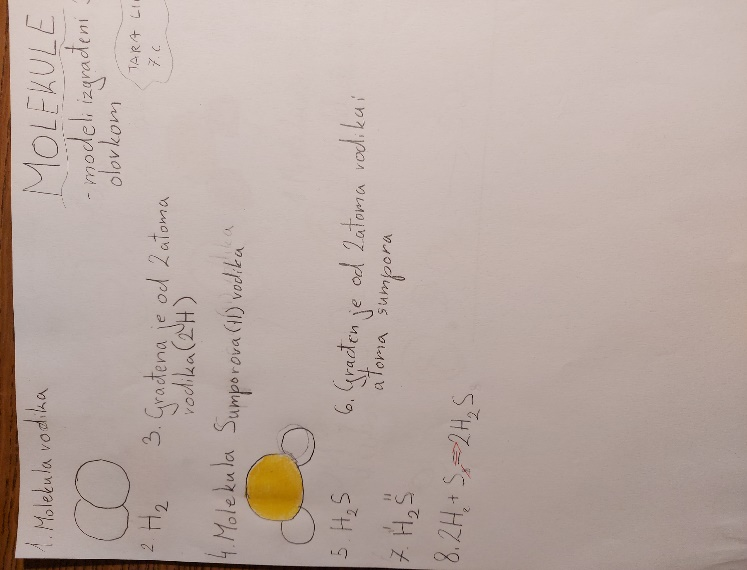 MOLEKULE
- modeli izgrađeni
olovkom
TARA
7.C
1. Molekula vodika
2 H₂
3. Građena je od 2 atoma
vodika (2H)
4. Molekula Sumporova(II) vodika
5 H₂S
6. Građen je od 2 atoma vodika i
atoma sumpora
7. H₂S
8. 2H₂ + S ⇒ 2H₂S